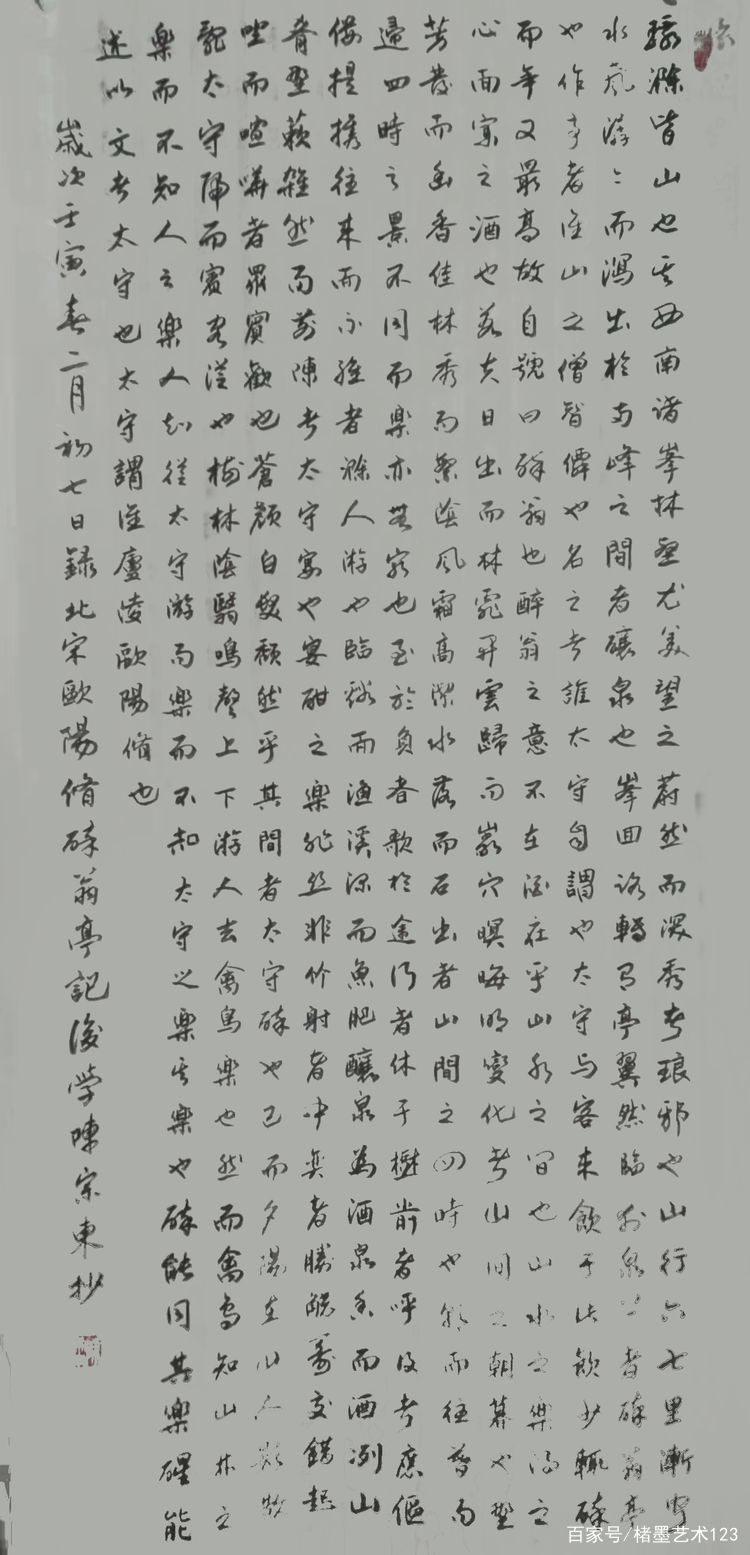 環滁皆山也其西南諸峯林壑尤美望之蔚然而深秀者琅邪也山行六七里漸聞
水聲潺々而瀉出於兩峰之間者釀泉也峯回路轉有亭翼然臨於泉上者醉翁亭
也作亭者誰山之僧智僊也名之者誰太守自謂也太守与客來飲于此飲少輒醉
而年又最高故自號曰醉翁也醉翁之意不在酒在乎山水之間也山水之樂得之
心而寓之酒也若夫日出而林霏開雲歸而巖穴暝晦明變化者山間之朝暮也野
芳發而幽香佳林秀而繁陰風霜高潔水落而石出者山間之四時也朝而往暮而
歸四時之景不同而樂亦無窮也至於負者歌於途行者休于樹前者呼後者應傴
僂提攜往來而不絕者滁人游也臨谿而漁溪深而魚肥釀泉為酒泉香而酒冽山
肴野蔌雜然而前陳者太守宴也宴酣之樂非絲非竹射者中奕者勝觥籌交錯起
坐而喧嘩者眾賓歡也蒼顏白髮頹然乎其間者太守醉也已而夕陽在山人影散
亂太守歸而賓客從也樹林陰翳鳴聲上下游人去禽鳥樂也然而禽鳥知山林之
樂而不知人之樂人知從太守游而樂而不知太守之樂其樂也醉能同其樂醒能
述以文者太守也太守謂誰廬陵歐陽脩也
歲次壬寅春二月初七日録北宋歐陽脩醉翁亭記後學陳宗東抄
百家号/楮墨艺术123